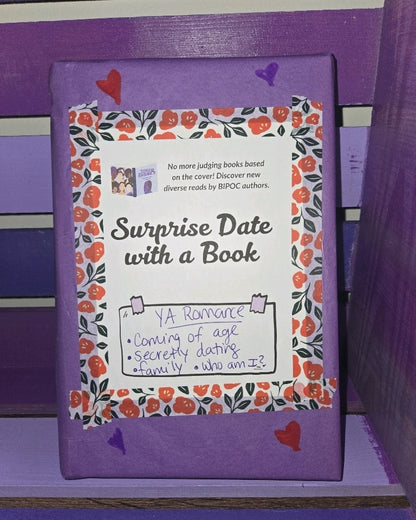 No more judging books based
on the cover! Discover new
diverse reads by BIPOC authors.
Surprise Date
with a Book
YA Romance
• Coming of age
• secretly dating
• family • who am I?